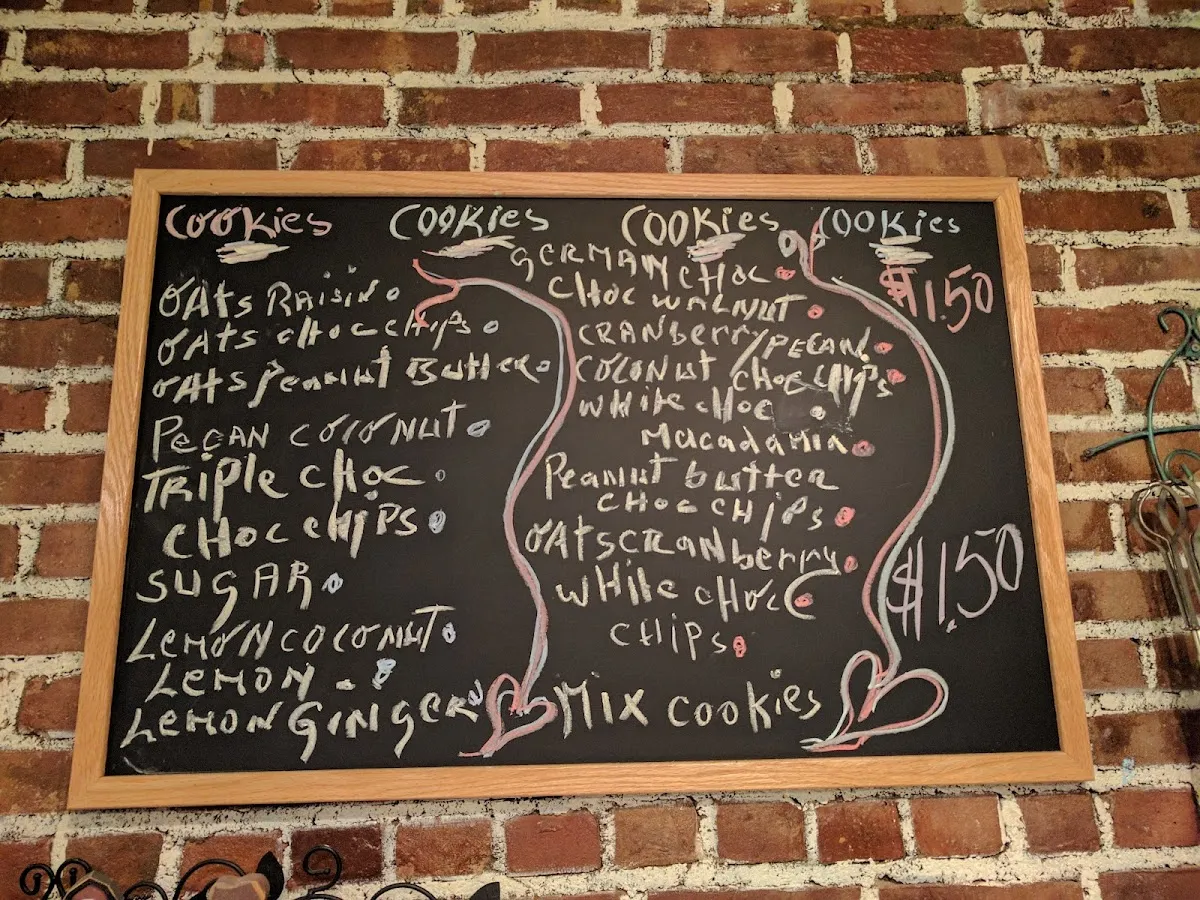 Cookies Cookies Cookies Cookies
OAts Raisin
OAts choc chips
OAts Peanut Butter
Pecan coconut
Triple choc
choc chips
SUGAR
Lemon coconut
Lemon
Lemon Ginger
German choc
choc walnut
cranberry/pecan
coconut choc chips
white choc
Macadamia
Peanut butter
choc chips
OAts cranberry
white choc
chips
Mix cookies
$1.50
$1.50